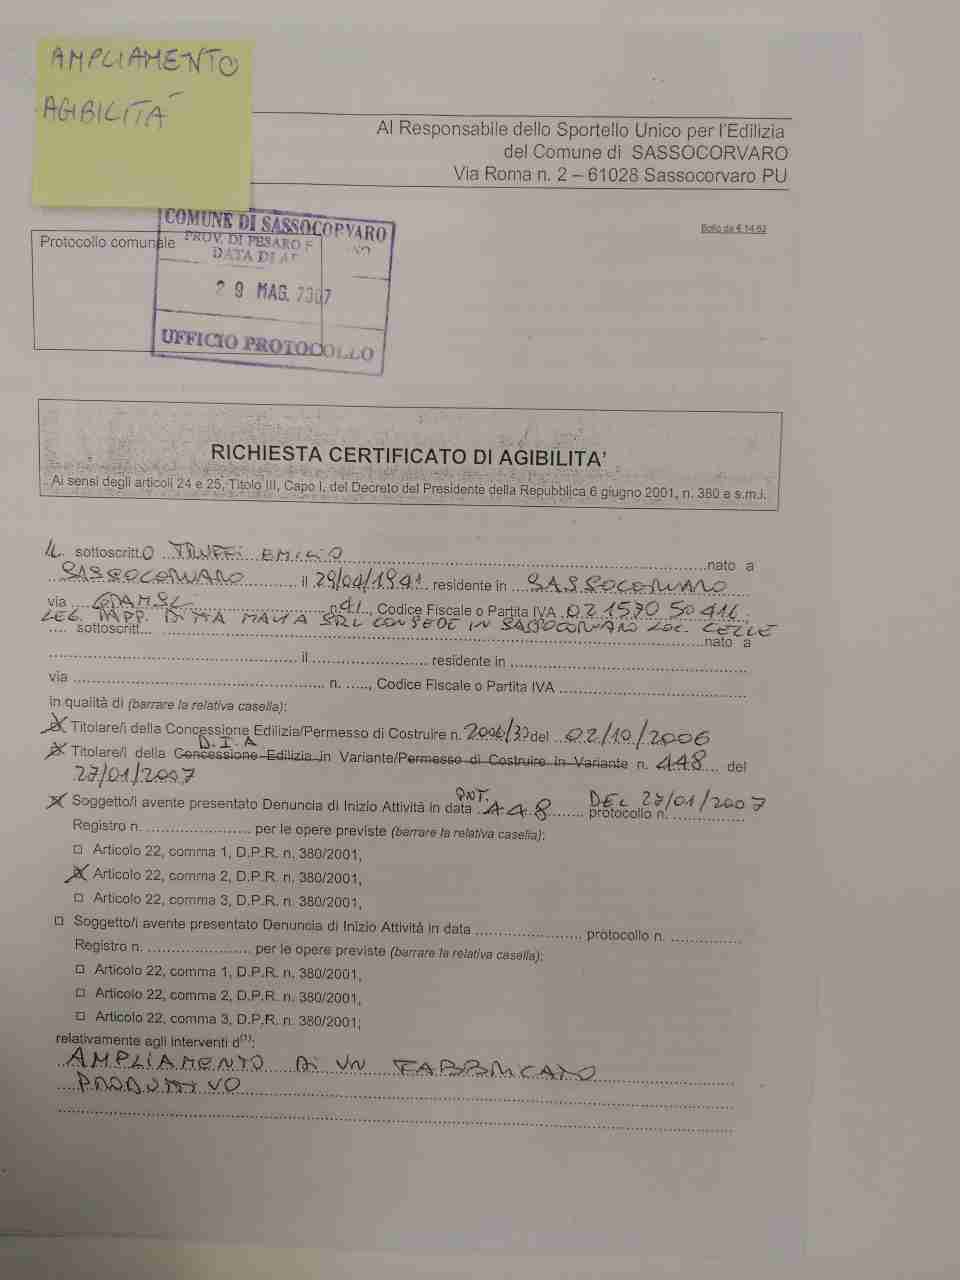 AMPLIAMENTO
AGIBILITÀ
Al Responsabile dello Sportello Unico per l'Edilizia
del Comune di SASSOCORVARO
Via Roma n. 2 – 61028 Sassocorvaro PU
Bollo da € 14.62
Protocollo comunale
COMUNE DI SASSOCORVARO
PROV. DI PESARO
DATA DI
29 MAG. 2007
UFFICIO PROTOCOLLO
RICHIESTA CERTIFICATO DI AGIBILITA'
Ai sensi degli articoli 24 e 25, Titolo III, Capo I, del Decreto del Presidente della Repubblica 6 giugno 2001, n. 380 e s.m.i.
IL sottoscritt.O EMILIO nato a
SASSOCORVARO il 29/04/1941 residente in SASSOCORVARO
via n. 41, Codice Fiscale o Partita IVA 02157050411
LEG. RAPP. SRL CON SEDE IN SASSOCORVARO LOC. CELLE
.... sottoscritt... nato a
il residente in
via n. ....., Codice Fiscale o Partita IVA
in qualità di (barrare la relativa casella):
Titolare/i della Concessione Edilizia/Permesso di Costruire n. del 02/10/2006
D.I.A
Titolare/i della Concessione Edilizia in Variante/Permesso di Costruire in Variante n. 448 del
27/01/2007
Soggetto/i avente presentato Denuncia di Inizio Attività in data PROT. 448 protocollo n. DEL 27/01/2007
Registro n. per le opere previste (barrare la relativa casella):
Articolo 22, comma 1, D.P.R. n. 380/2001,
Articolo 22, comma 2, D.P.R. n. 380/2001,
Articolo 22, comma 3, D.P.R. n. 380/2001,
Soggetto/i avente presentato Denuncia di Inizio Attività in data protocollo n.
Registro n. per le opere previste (barrare la relativa casella):
Articolo 22, comma 1, D.P.R. n. 380/2001,
Articolo 22, comma 2, D.P.R. n. 380/2001,
Articolo 22, comma 3, D.P.R. n. 380/2001;
relativamente agli interventi d(1):
AMPLIAMENTO DI UN FABBRICATO
PRODUTTIVO